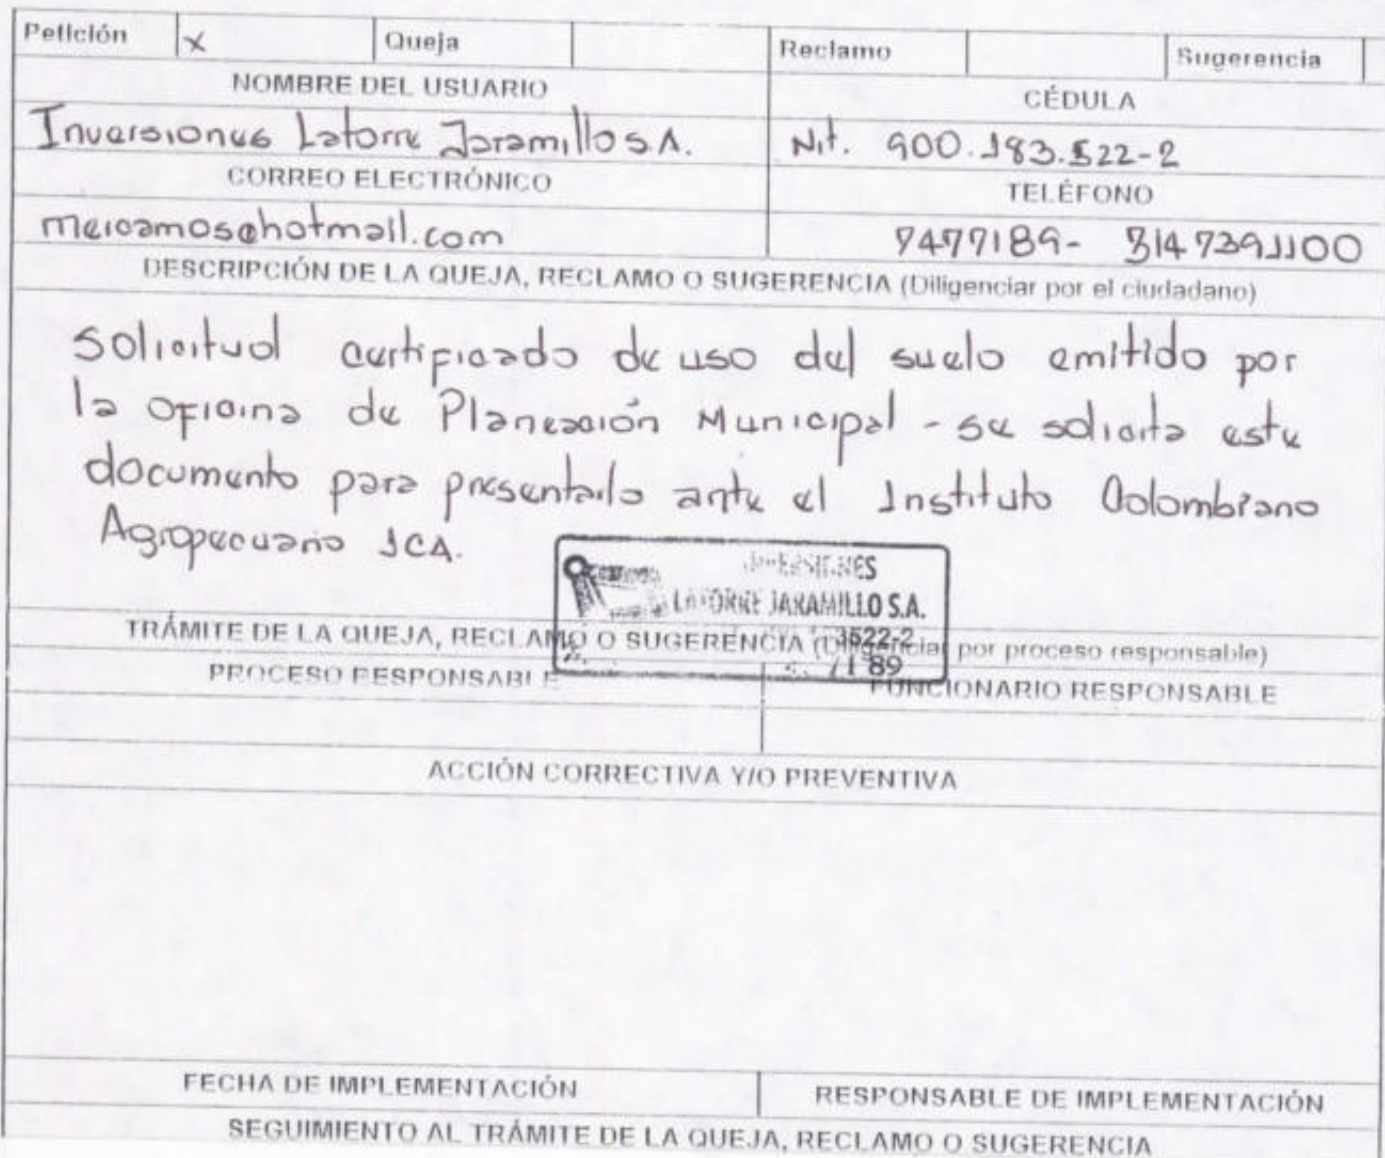 Petición X Queja Reclamo Sugerencia
NOMBRE DEL USUARIO CÉDULA
Inversiones Latorre Jaramillo S.A. Nit. 900.183.522-2
CORREO ELECTRÓNICO TELÉFONO
mercamos@hotmail.com 7477189- 3147391100
DESCRIPCIÓN DE LA QUEJA, RECLAMO O SUGERENCIA (Diligenciar por el ciudadano)
Solicitud certificado de uso del suelo emitido por
la oficina de Planeación Municipal - se solicita este
documento para presentarlo ante el Instituto Colombiano
Agropecuario ICA.
INVERSIONES
LATORRE JARAMILLO S.A.
3522-2
TRÁMITE DE LA QUEJA, RECLAMO O SUGERENCIA (Diligenciar por proceso responsable)
189
PROCESO RESPONSABLE FUNCIONARIO RESPONSABLE
ACCIÓN CORRECTIVA Y/O PREVENTIVA
FECHA DE IMPLEMENTACIÓN RESPONSABLE DE IMPLEMENTACIÓN
SEGUIMIENTO AL TRÁMITE DE LA QUEJA, RECLAMO O SUGERENCIA